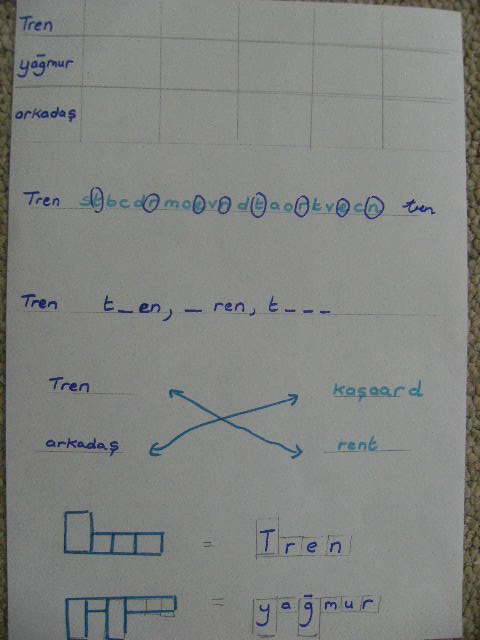 Tren
yağmur
arkadaş
Tren stbcdrmoevndtaortvecn tren
Tren t_en, _ ren, t _ _ _
Tren kaşaard
arkadaş rent
= Tren
= yağmur